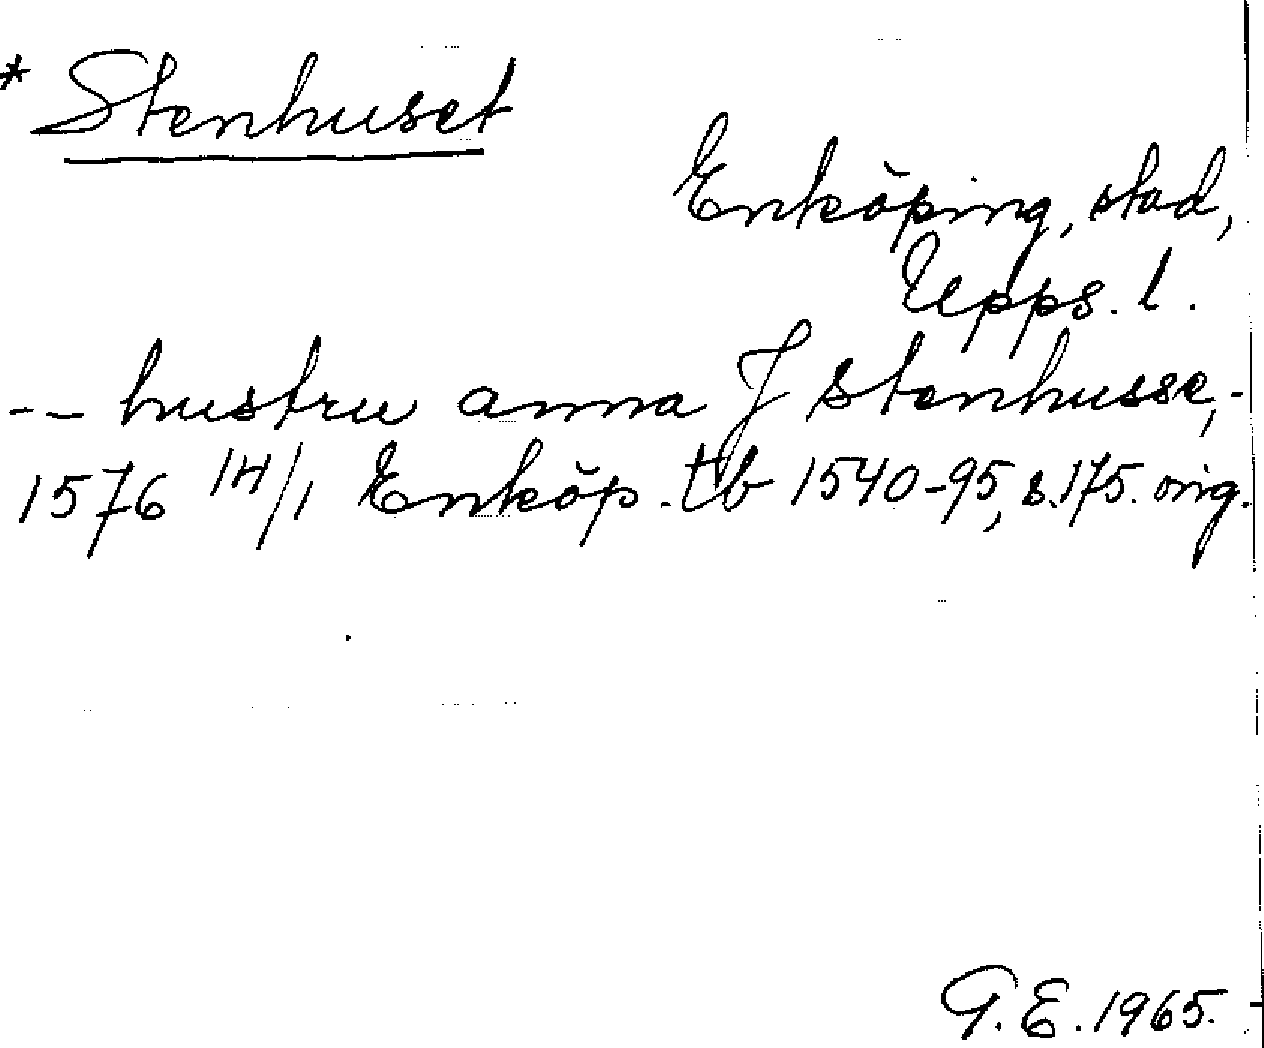 * Stenhuset
Enköping, stad,
Upps. l.
-- hustru anna J stenhusse,-
1576 14/1 Enköp. tb 1540-95, s. 175. orig.
G. E. 1965.